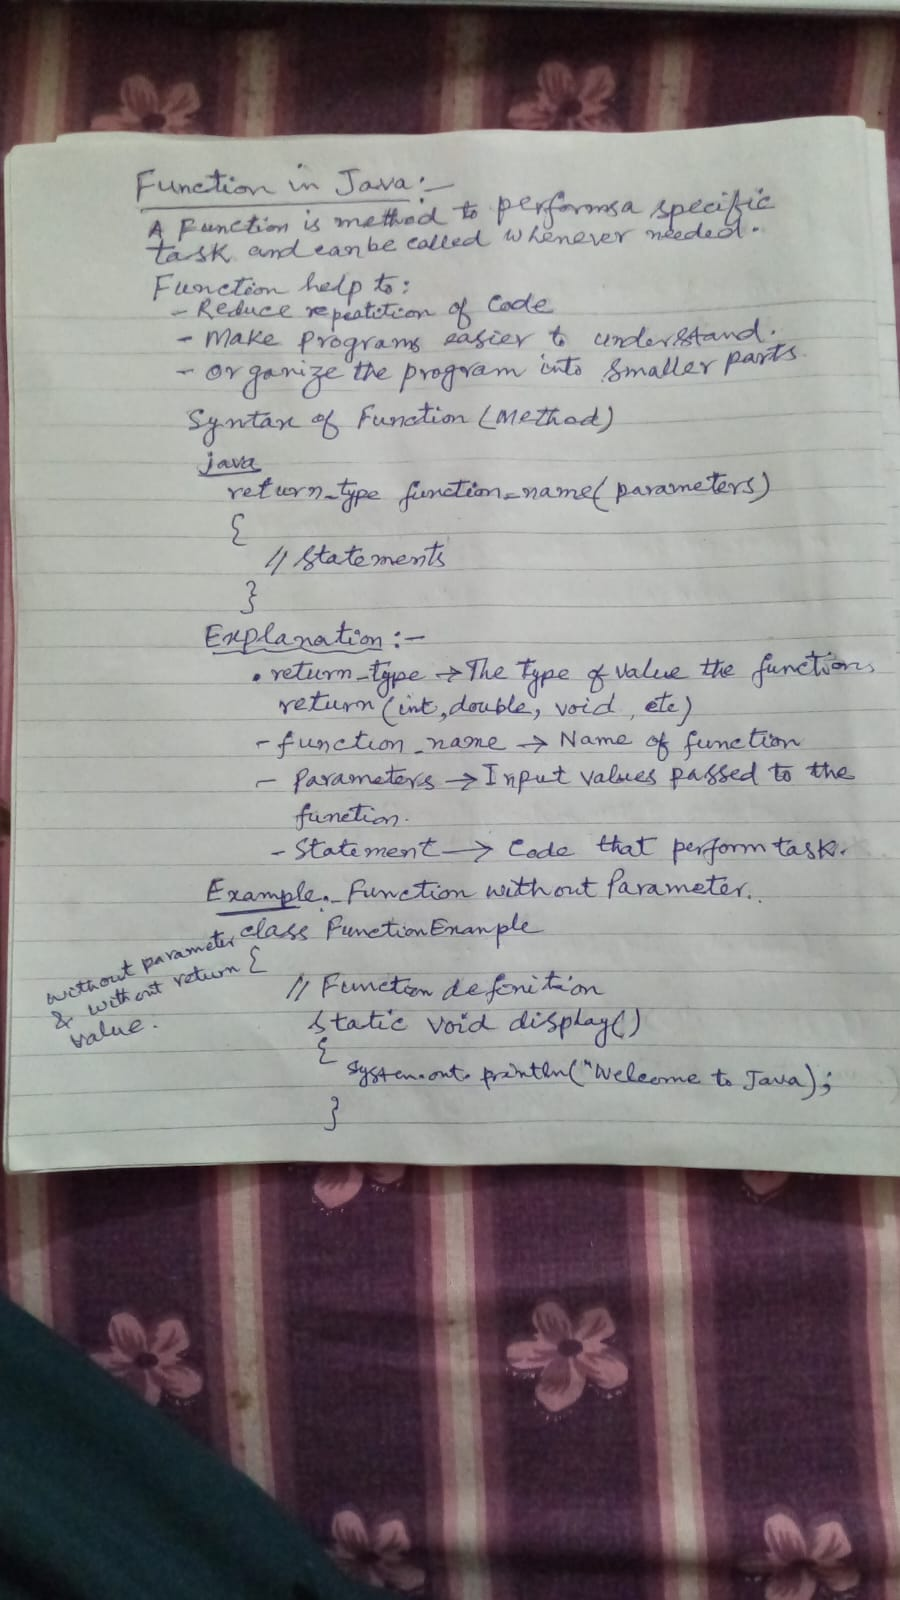 Function in Java:-
A Function is method to performs a specific
task and can be called whenever needed.
Function help to:
- Reduce repeatition of Code
- Make Programs easier to understand.
- organize the program into smaller parts.
Syntax of Function (Method)
java
return_type function_name( parameters)
{
// Statements
}
Explanation :-
• return_type → The Type of Value the functions
return (int, double, void, etc)
- function_name → Name of function
- Parameters → Input values passed to the
function.
- Statement → Code that perform task.
Example:- Function without Parameter.
class FunctionExample
without parameter
& without return
value.
{
// Function defenition
static void display()
{
System.out.println("Welcome to Java);
}